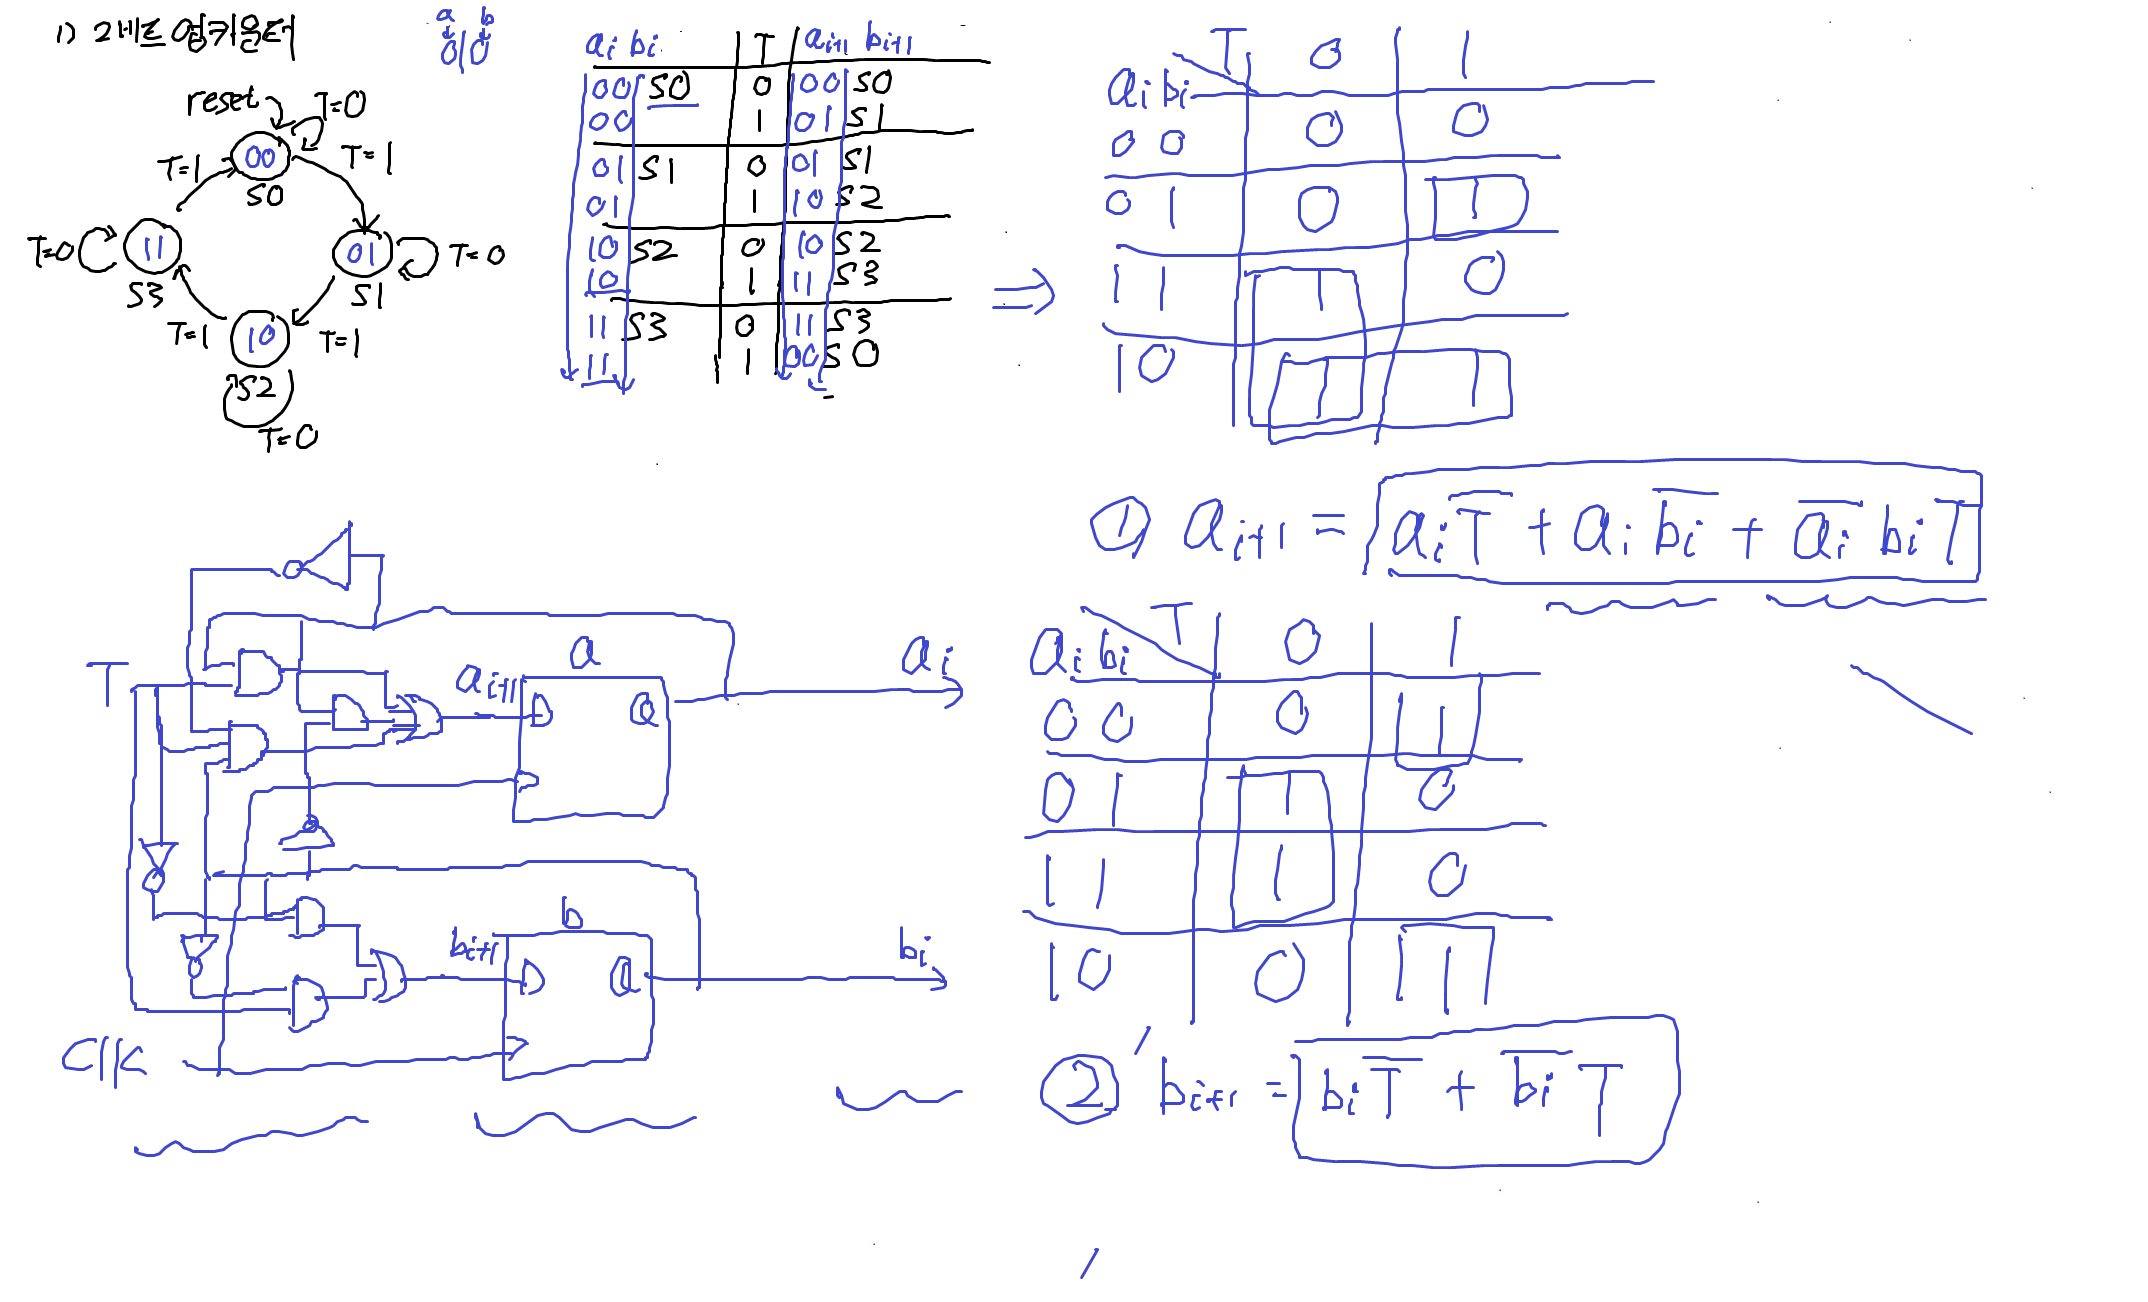 1) 2비트 업카운터
a b
0/0
reset
T=0
00
S0
T=1
T=1
T=0
11
S3
01
S1
T=0
T=1
10
T=1
S2
T=0
ai bi T ai+1 bi+1
00 S0 0 00 S0
00 1 01 S1
01 S1 0 01 S1
01 1 10 S2
10 S2 0 10 S2
10 1 11 S3
11 S3 0 11 S3
11 1 00 S0
⇒
T 0 1
ai bi
0 0 0 0
0 1 0 1
1 1 1 0
1 0 1 1
① ai+1 = aiT̅ + ai b̅i̅ + a̅i̅ bi T
T 0 1
ai bi
0 0 0 1
0 1 1 0
1 1 1 0
1 0 0 1
② bi+1 = biT̅ + b̅i̅ T
T
ai+1
a
D Q
ai
b
bi+1
D Q
bi
Clk